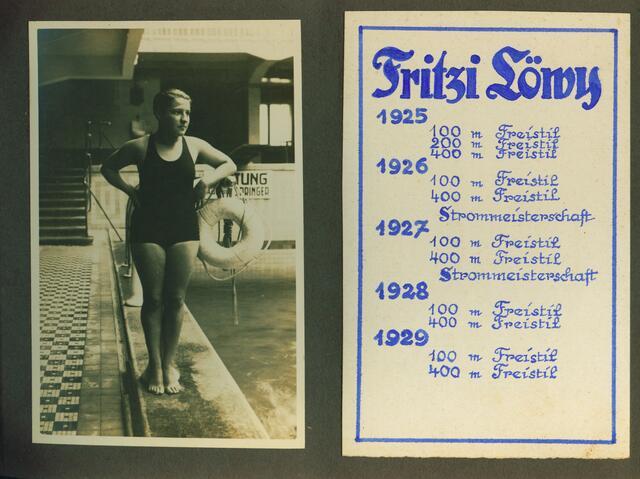 TUNG
SPRINGER
Fritzi Löwy
1925
100 m Freistil
200 m Freistil
400 m Freistil
1926
100 m Freistil
400 m Freistil
Strommeisterschaft
1927
100 m Freistil
400 m Freistil
Strommeisterschaft
1928
100 m Freistil
400 m Freistil
1929
100 m Freistil
400 m Freistil